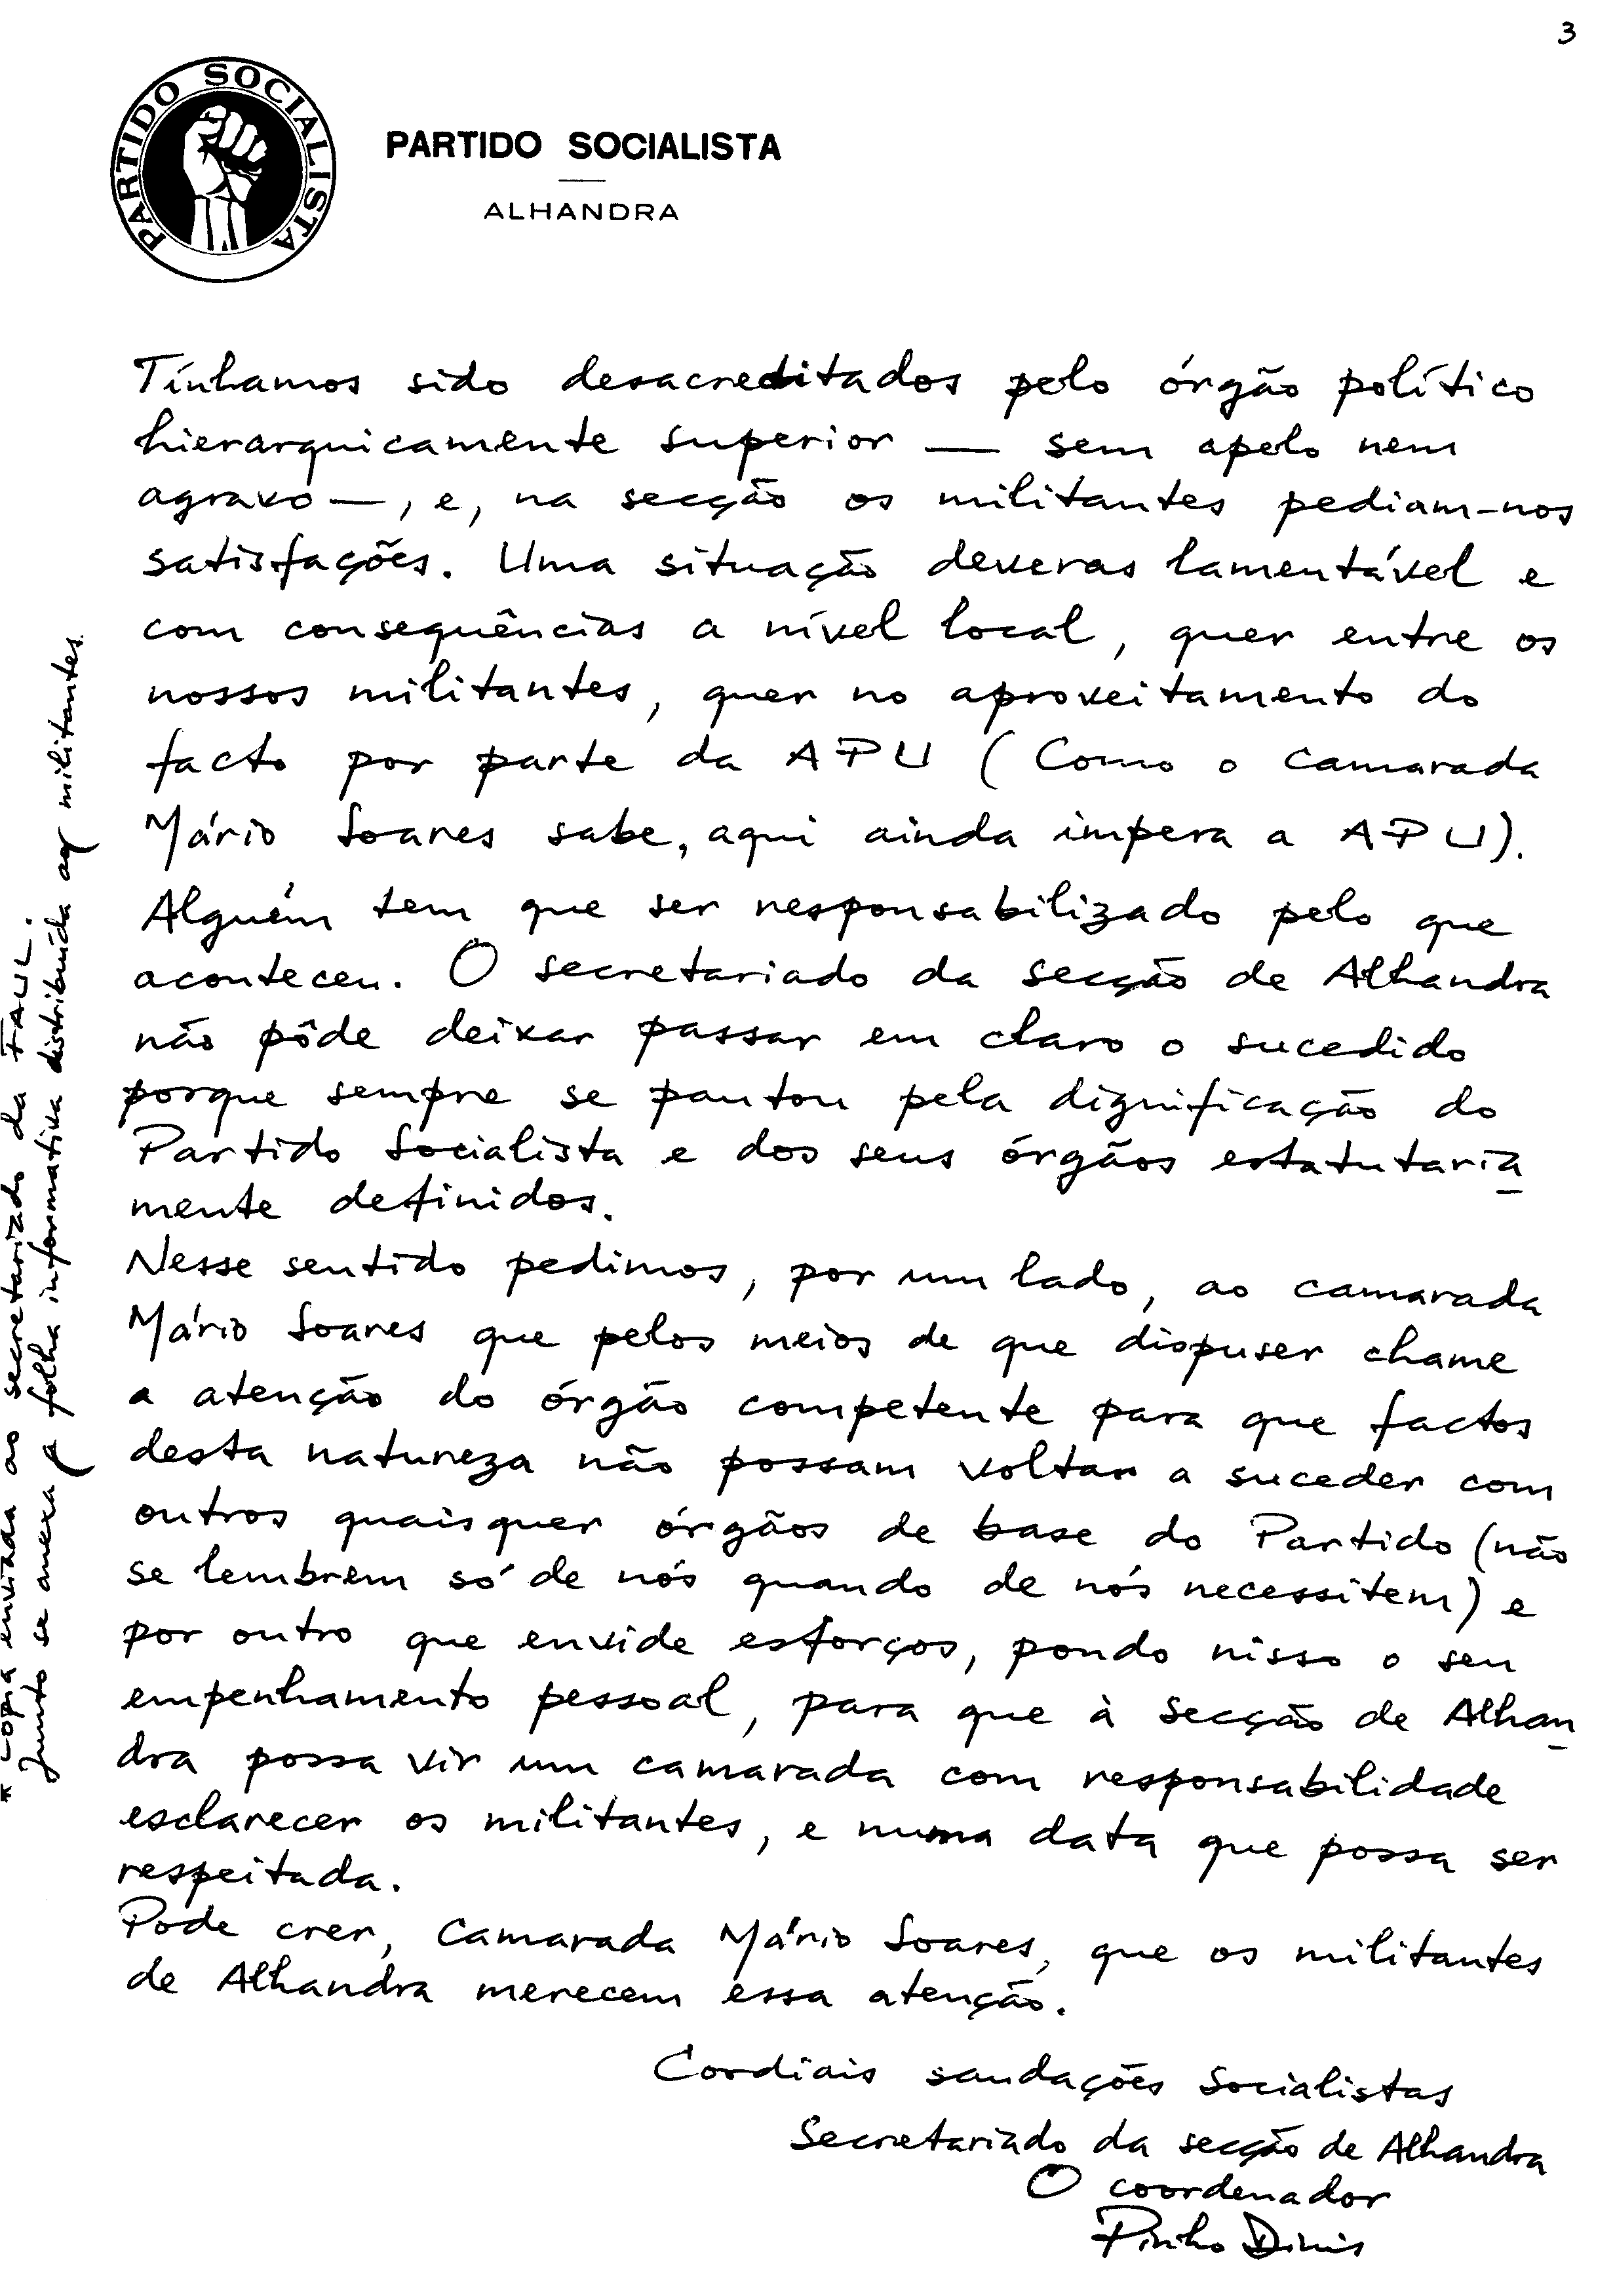 3
PARTIDO SOCIALISTA
PARTIDO SOCIALISTA
ALHANDRA
Tínhamos sido desacreditados pelo órgão político
hierarquicamente superior — sem apelo nem
agravo —, e, na secção os militantes pediam-nos
satisfações. Uma situação deveras lamentável e
com consequências a nível local, quer entre os
nossos militantes, quer no aproveitamento do
facto por parte da APU (Como o camarada
Mário Soares sabe, aqui ainda impera a APU).
Alguém tem que ser responsabilizado pelo que
aconteceu. O secretariado da secção de Alhandra
não pôde deixar passar em claro o sucedido
porque sempre se pautou pela dignificação do
Partido Socialista e dos seus órgãos estatutaria
mente definidos.
Nesse sentido pedimos, por um lado, ao camarada
Mário Soares que pelos meios de que dispuser chame
a atenção do órgão competente para que factos
desta natureza não possam voltar a suceder com
outros quaisquer órgãos de base do Partido (não
se lembrem só de nós quando de nós necessitem) e
por outro que envide esforços, pondo nisso o seu
empenhamento pessoal, para que à Secção de Alhan
dra possa vir um camarada com responsabilidade
esclarecer os militantes, e numa data que possa ser
respeitada.
Pode crer, Camarada Mário Soares, que os militantes
de Alhandra merecem essa atenção.
Cordiais saudações Socialistas
Secretariado da secção de Alhandra
O coordenador
Pinho Dinis
* Copia enviada ao secretariado da FAUL.
Junto se anexa a folha informativa distribuída aos militantes.